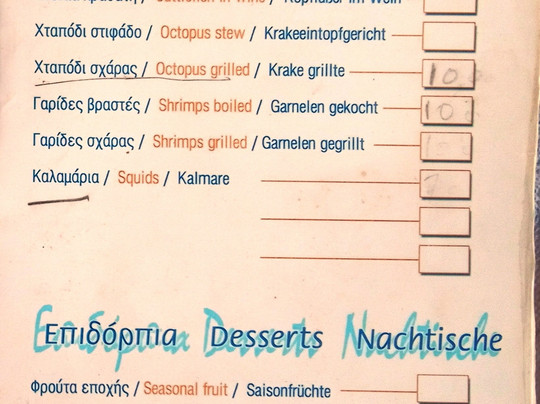 Χταπόδι στιφάδο / Octopus stew / Krakeeintopfgericht
Χταπόδι σχάρας / Octopus grilled / Krake grillte 10
Γαρίδες βραστές / Shrimps boiled / Garnelen gekocht 10
Γαρίδες σχάρας / Shrimps grilled / Garnelen gegrillt
Καλαμάρια / Squids / Kalmare
Επιδόρπια Desserts Nachtische
Φρούτα εποχής / Seasonal fruit / Saisonfrüchte